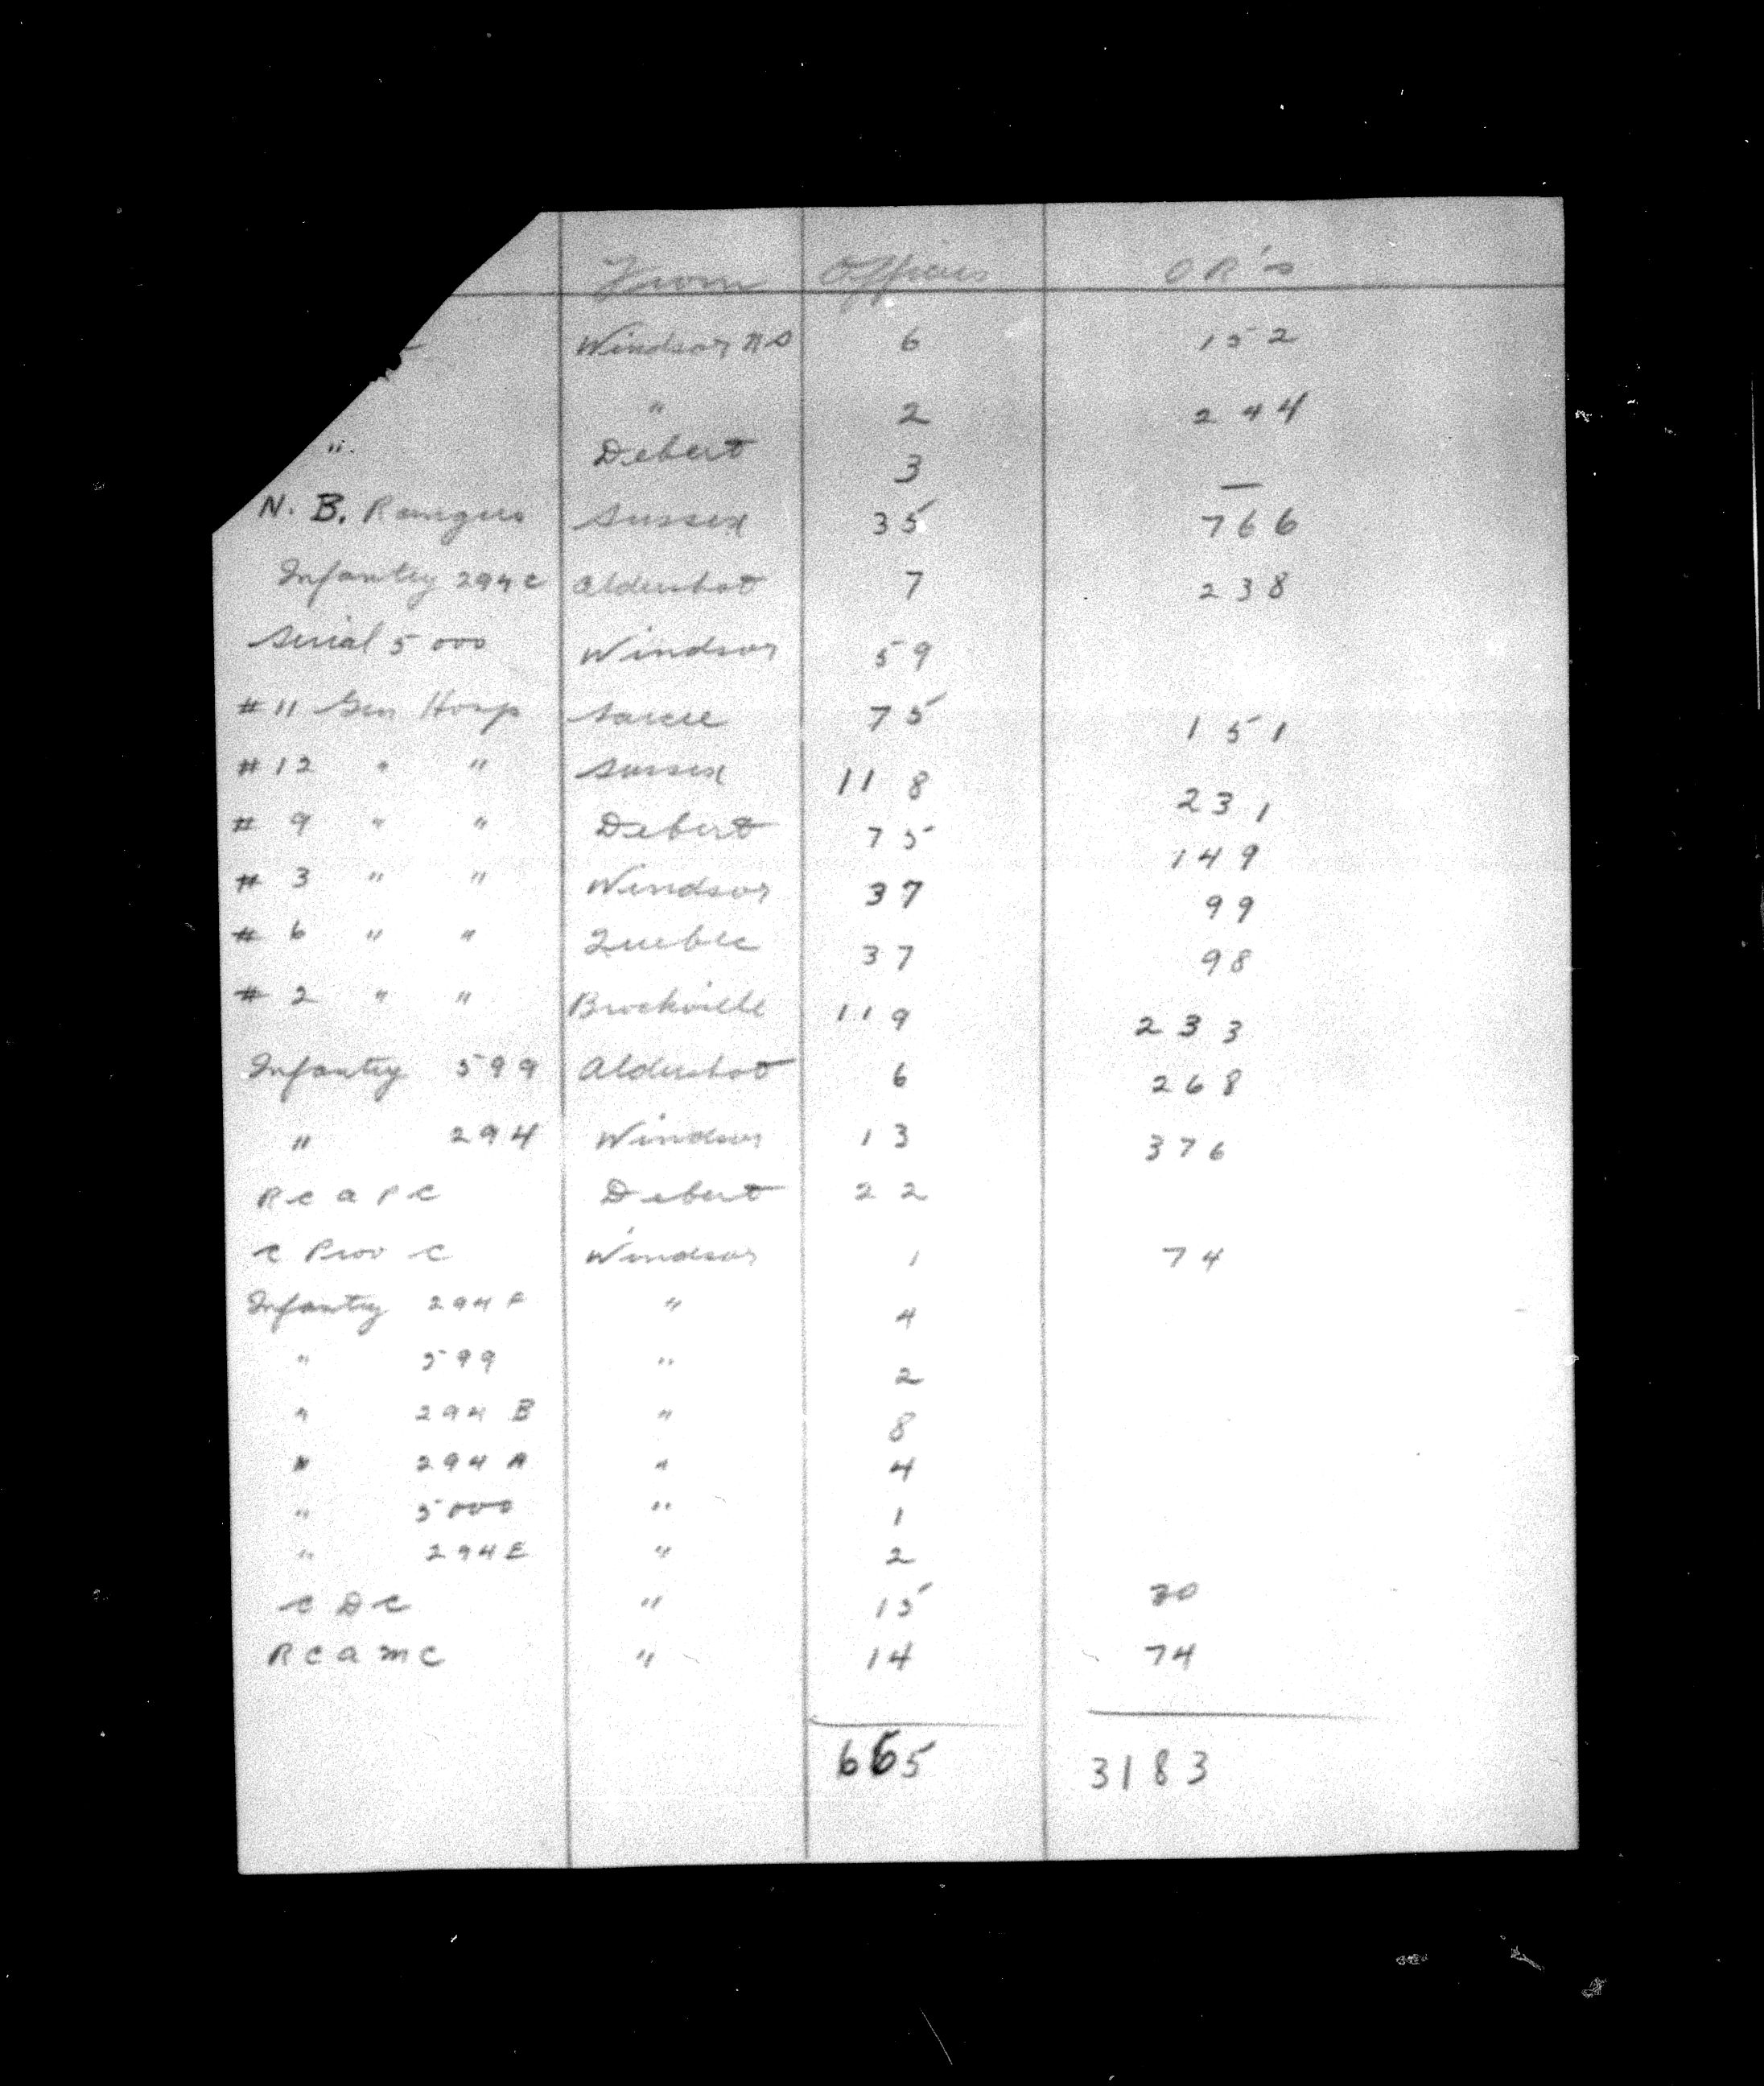 From Officers OR's
c Windsor NS 6 152
" 2 244
" Debert 3 —
N. B. Rangers Sussex 35 766
Infantry 294 C Aldershot 7 238
Serial 5000 Windsor 59
# 11 Gen Hosp Sarcee 75 151
# 12 " " Sussex 118 231
# 9 " " Debert 75 149
# 3 " " Windsor 37 99
# 6 " " Quebec 37 98
# 2 " " Brockville 119 233
Infantry 599 Aldershot 6 268
" 294 Windsor 13 376
R C A P C Debert 22
C Prov C Windsor 1 74
Infantry 294 F " 4
" 599 " 2
" 294 B " 8
" 294 A " 4
" 5000 " 1
" 294 E " 2
C D C " 15 30
R C A M C " 14 74
665 3183